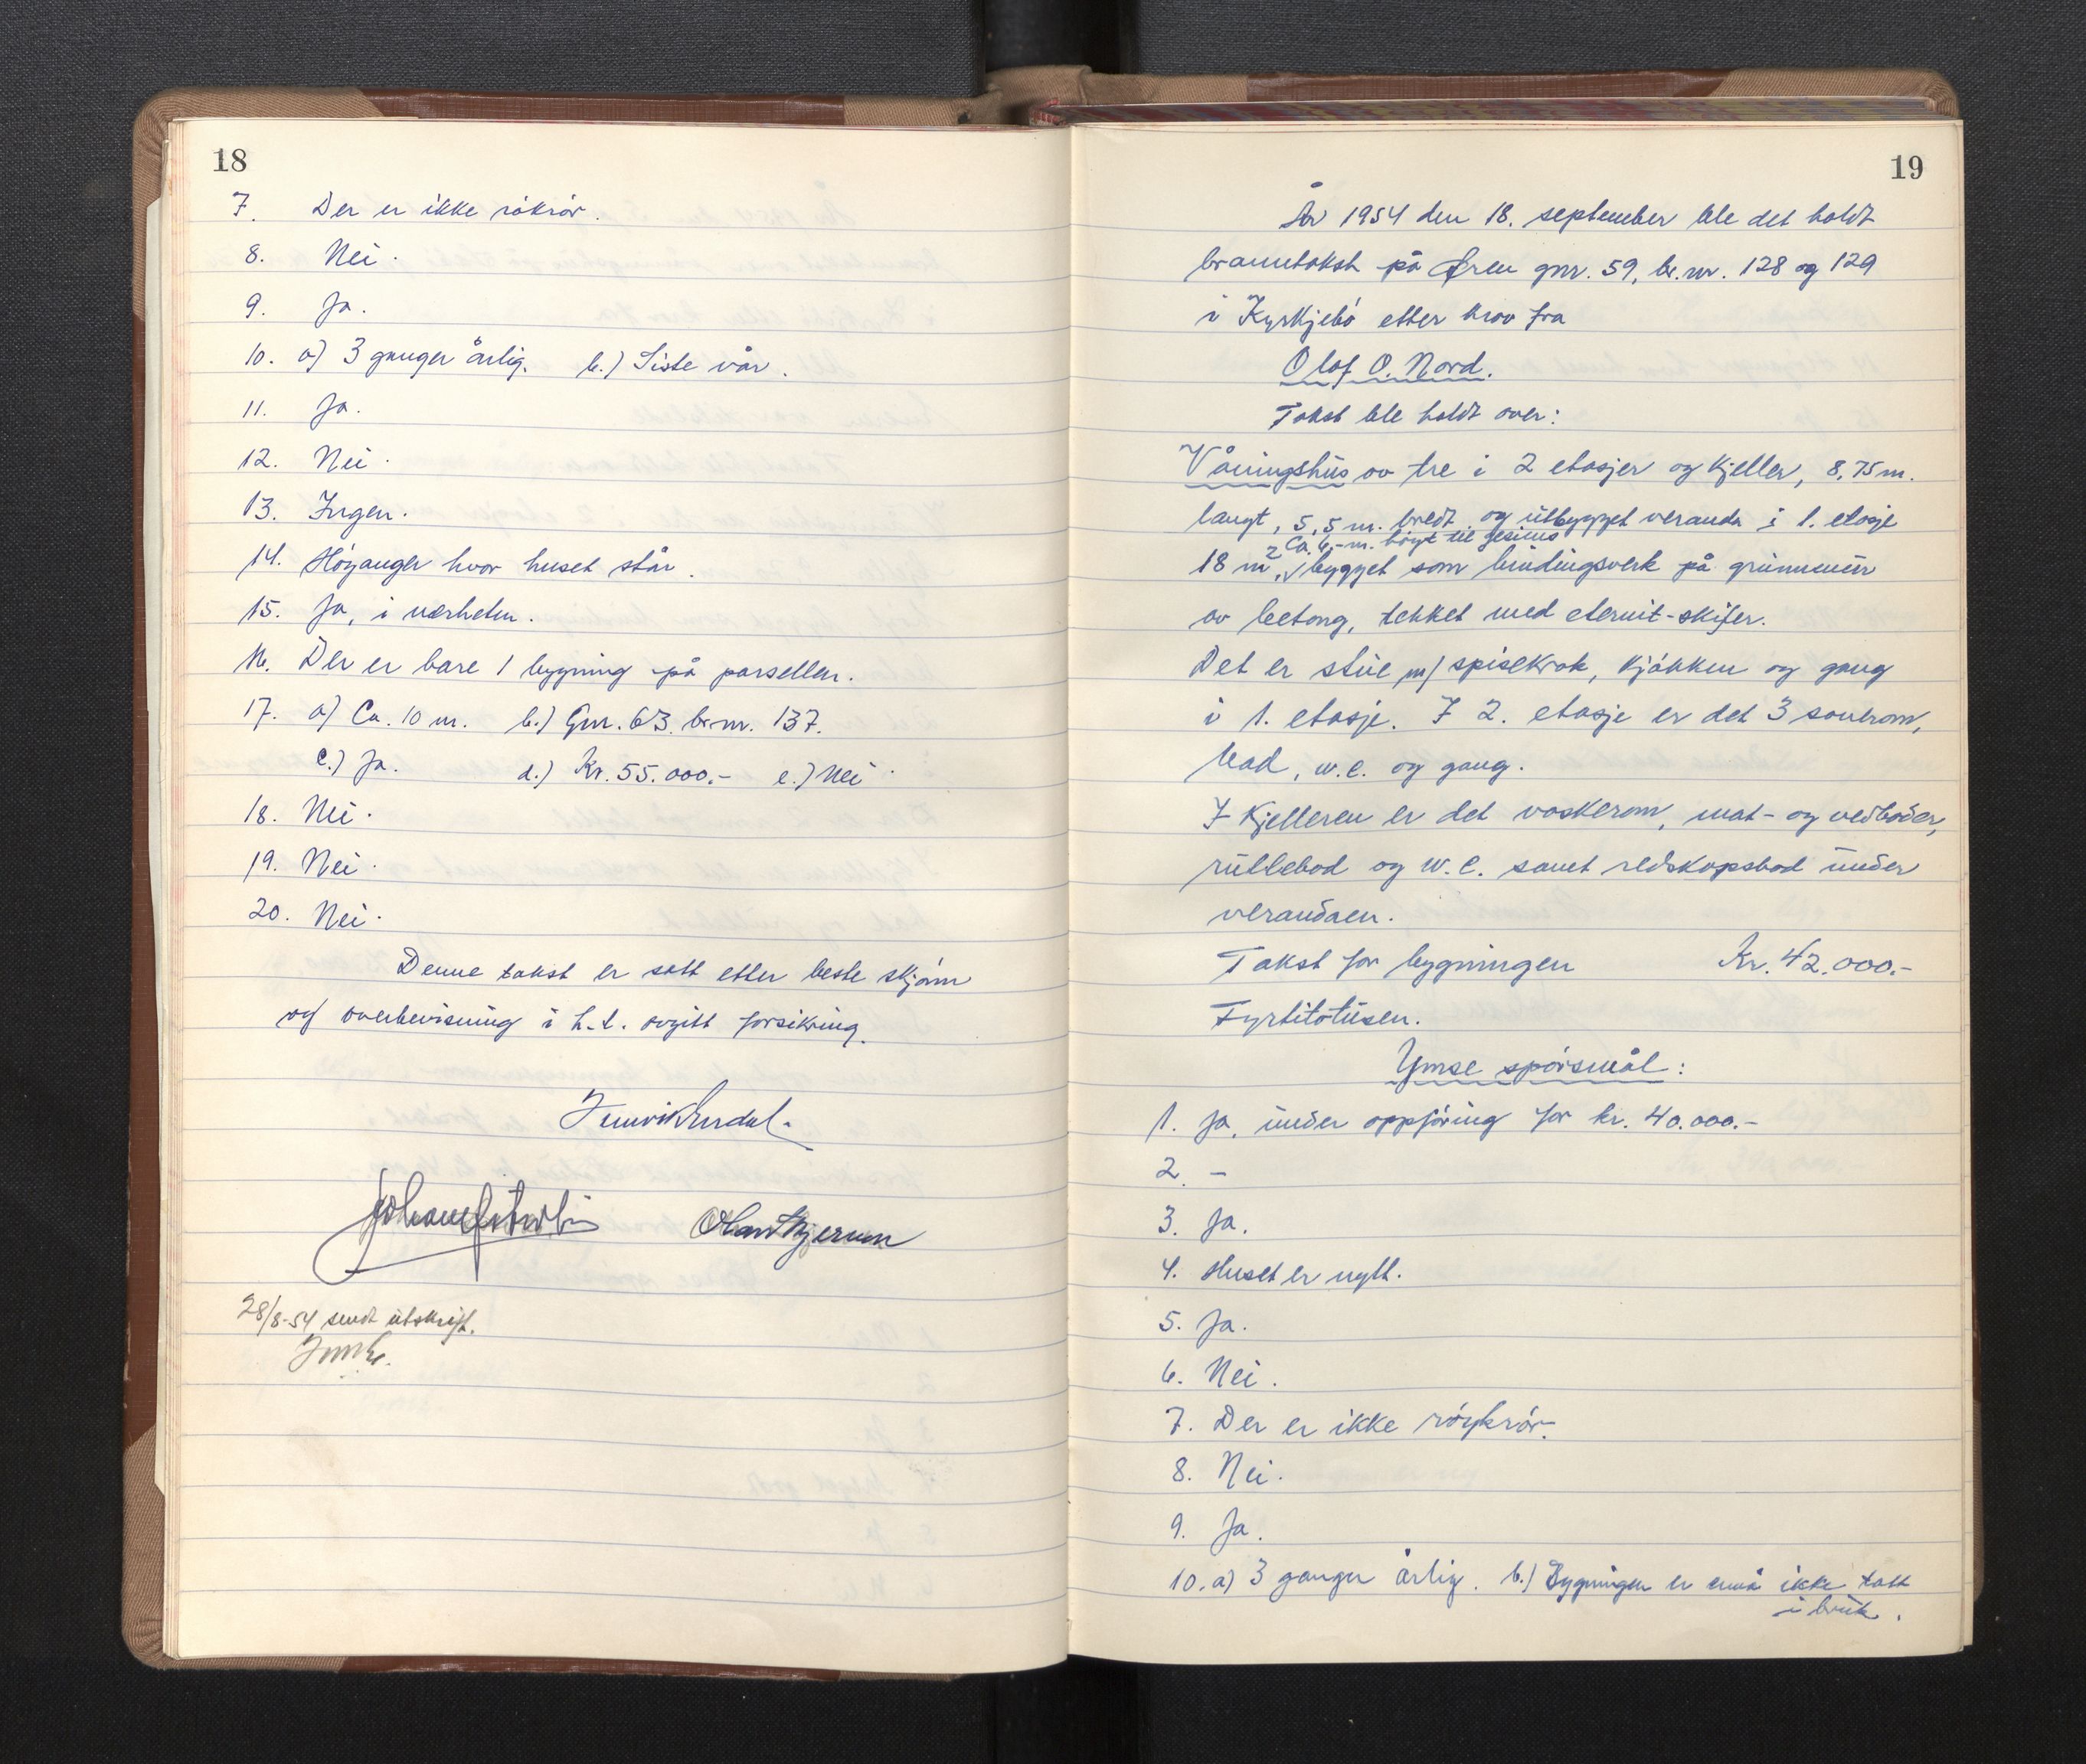 18
7. Der er ikke rökrör.
8. Nei.
9. Ja.
10. a) 3 ganger årlig. b.) Siste vår.
11. Ja.
12. Nei.
13. Ingen.
14. Höyanger hvor huset står.
15. Ja, i nærheten.
16. Der er bare 1 bygning på parsellen.
17. a) Ca. 10 m. b.) Gnr. 63 br.nr. 137.
c.) Ja. d.) Kr. 55.000.- e.) Nei.
18. Nei.
19. Nei.
20. Nei.
Denne takst er satt etter beste skjönn
og overbevisning i h.t. avgitt forsikring.
28/8-54 sendt utskrift.
19
År 1954 den 18. september ble det holdt
branntakst på Øren gnr. 59, br.nr. 128 og 129
i Kyrkjebö etter krav fra
Olaf O. Nord.
Takst ble holdt over:
Våningshus av tre i 2 etasjer og kjeller, 8,75 m.
langt, 5,5 m. bredt og utbygget veranda i 1. etasje
Ca. 6,- m. höyt til gesims
18 m², √ bygget som bindingsverk på grunnmur
av betong, tekket med eternit-skifer.
Det er stue m/ spisekrok, kjökken og gang
i 1. etasje. I 2. etasje er det 3 soverom,
bad, w.c. og gang.
I kjelleren er det vaskerom, mat- og vedboder,
rullebod og w.c. samt redskapsbod under
verandaen.
Takst for bygningen Kr. 42.000.-
Fyrtitotusen.
Ymse spörsmål:
1. Ja, under oppföring for kr. 40.000.-
2. -
3. Ja.
4. Huset er nytt.
5. Ja.
6. Nei.
7. Der er ikke röykrör.
8. Nei.
9. Ja.
10. a) 3 ganger årlig. b.) Bygningen er ennå ikke tatt
i bruk.